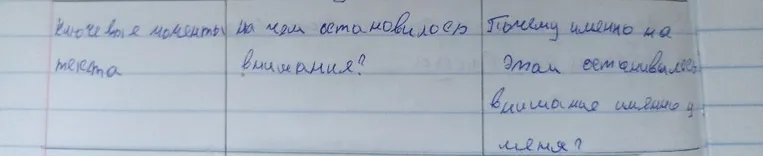 Ключевые моменты
текста
на чем остановилось
внимания?
Почему именно на
этом остановилось
внимание именно у
меня?